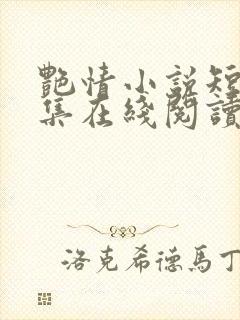 艷情小說短
集在綫閱讀
洛克希德馬丁